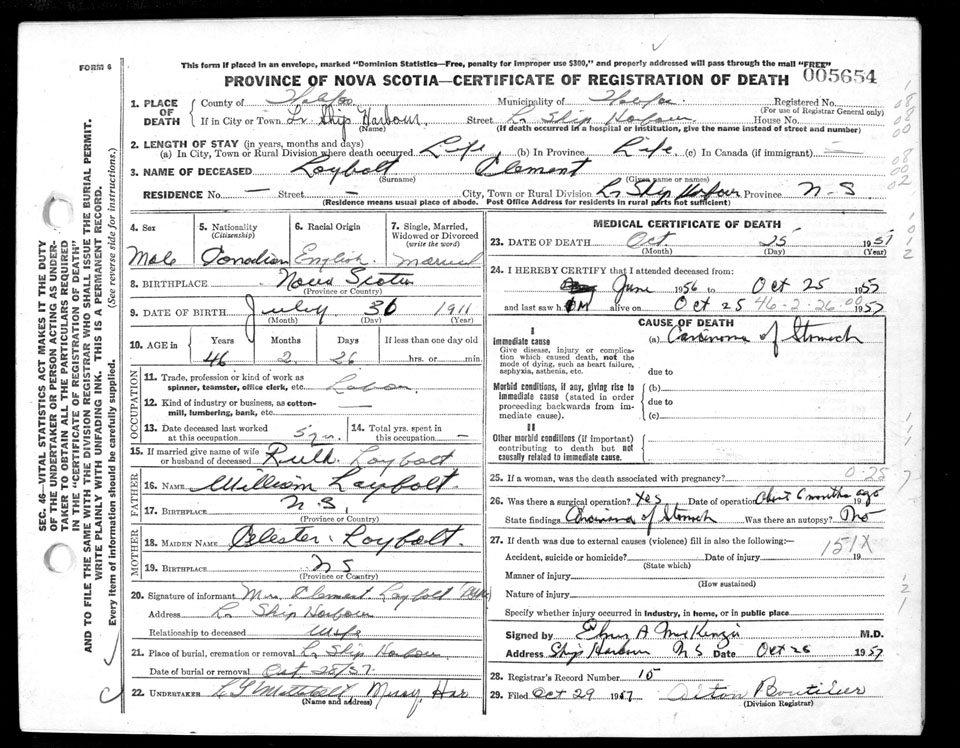 This form if placed in an envelope, marked "Dominion Statistics—Free, penalty for improper use $300," and properly addressed will pass through the mail "FREE"
FORM 6
PROVINCE OF NOVA SCOTIA—CERTIFICATE OF REGISTRATION OF DEATH
005654
1. PLACE OF DEATH
County of Halifax Municipality of Halifax Registered No.
(For use of Registrar General only)
If in City or Town Lr Ship Harbour Street Lr Ship Harbour House No.
(Name) (If death occurred in a hospital or institution, give the name instead of street and number)
2. LENGTH OF STAY (in years, months and days)
(a) In City, Town or Rural Division where death occurred Life (b) In Province Life (c) In Canada (if immigrant) —
3. NAME OF DECEASED Laybolt Clement
(Surname) (Given name or names)
RESIDENCE No. — Street — City, Town or Rural Division Lr Ship Harbour Province N-S
(Residence means usual place of abode. Post Office Address for residents in rural parts not sufficient)
4. Sex 5. Nationality (Citizenship) 6. Racial Origin 7. Single, Married, Widowed or Divorced (write the word)
Male Canadian English married
8. BIRTHPLACE Nova Scotia
(Province or Country)
9. DATE OF BIRTH July 30 1911
(Month) (Day) (Year)
10. AGE in Years Months Days If less than one day old
46 2 26 hrs. or min.
OCCUPATION
11. Trade, profession or kind of work as spinner, teamster, office clerk, etc. Labor
12. Kind of industry or business, as cotton-mill, lumbering, bank, etc. —
13. Date deceased last worked at this occupation 5 yrs. 14. Total yrs. spent in this occupation —
15. If married give name of wife or husband of deceased Ruth Laybolt
FATHER
16. NAME William Laybolt.
17. BIRTHPLACE N.S.
(Province or Country)
MOTHER
18. MAIDEN NAME Celester Laybolt.
19. BIRTHPLACE N S
(Province or Country)
20. Signature of informant Mrs. Clement Laybolt
Address Lr Ship Harbour
Relationship to deceased wife
21. Place of burial, cremation or removal Lr Ship Harbour
Date of burial or removal Oct 28/57
22. UNDERTAKER Mitchell, Musq Har
(Name and address)
MEDICAL CERTIFICATE OF DEATH
23. DATE OF DEATH Oct 25 1957
(Month) (Day) (Year)
24. I HEREBY CERTIFY that I attended deceased from:
June 1956 to Oct 25 1957
and last saw h im alive on Oct 25 46-2-26.00 1957
CAUSE OF DEATH
I
Immediate cause
Give disease, injury or complication which caused death, not the mode of dying, such as heart failure, asphyxia, asthenia, etc.
(a) Carcinoma of Stomach
due to
Morbid conditions, if any, giving rise to immediate cause (stated in order proceeding backwards from immediate cause).
(b)
due to
(c)
II
Other morbid conditions (if important) contributing to death but not causally related to immediate cause.
25. If a woman, was the death associated with pregnancy?
26. Was there a surgical operation? Yes Date of operation About 6 months ago 19
State findings Carcinoma of Stomach Was there an autopsy? No
27. If death was due to external causes (violence) fill in also the following:—
151X
Accident, suicide or homicide? Date of injury 19
(State which)
Manner of injury
(How sustained)
Nature of injury
Specify whether injury occurred in industry, in home, or in public place
Signed by A McKenzie M.D.
Address Ship Harbour N S Date Oct 26 1957
28. Registrar's Record Number 15
29. Filed Oct 29 1957 Boutilier
(Division Registrar)
SEC. 46—VITAL STATISTICS ACT MAKES IT THE DUTY
OF THE UNDERTAKER OR PERSON ACTING AS UNDER-
TAKER TO OBTAIN ALL THE PARTICULARS REQUIRED
IN THE "CERTIFICATE OF REGISTRATION OF DEATH"
AND TO FILE THE SAME WITH THE DIVISION REGISTRAR WHO SHALL ISSUE THE BURIAL PERMIT.
WRITE PLAINLY WITH UNFADING INK. THIS IS A PERMANENT RECORD.
Every item of information should be carefully supplied. (See reverse side for instructions.)